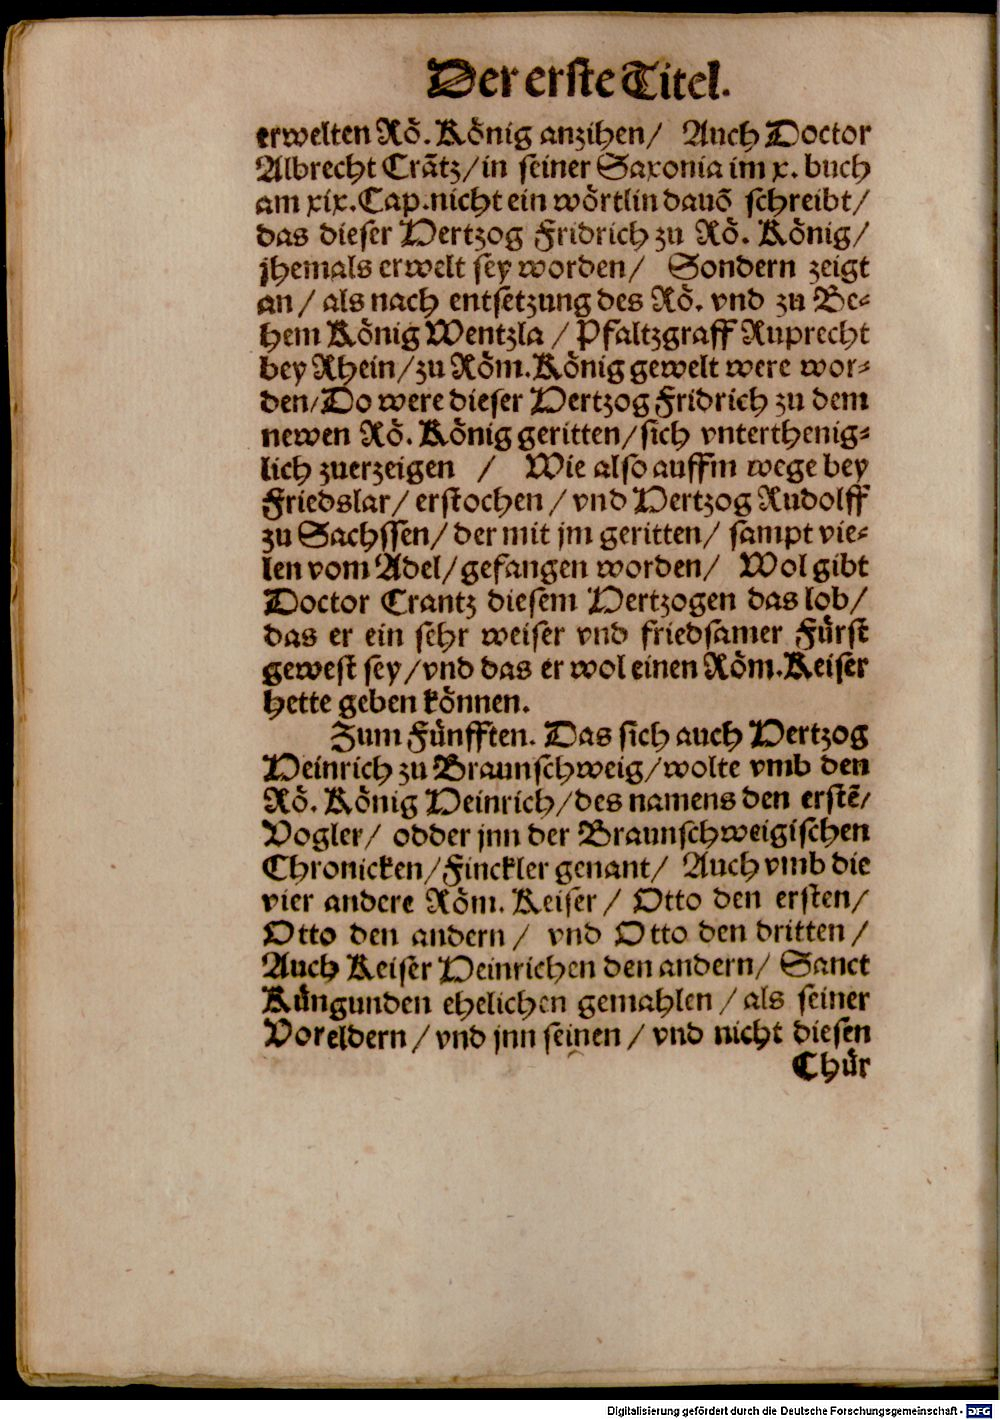 Der erste Titel.
erwelten Rö. König anzihen/ Auch Doctor
Albrecht Crātz/in seiner Saxonia im x. buch
am xix. Cap. nicht ein wörtlin dauō schreibt/
das dieser Hertzog Fridrich zu Rö. König/
jhemals erwelt sey worden/ Sondern zeigt
an/ als nach entsetzung des Rö. vnd zu Be-
hem König Wentzla/ Pfaltzgraff Ruprecht
bey Rhein/zu Röm. König gewelt were wor-
den/Do were dieser Hertzog Fridrich zu dem
newen Rö. König geritten/sich vnterthenig-
lich zuerzeigen / Wie also auffm wege bey
Friedslar/ erstochen/ vnd Hertzog Rudolff
zu Sachssen/ der mit jm geritten/ sampt vie-
len vom Adel/gefangen worden/ Wol gibt
Doctor Crantz diesem Hertzogen das lob/
das er ein sehr weiser vnd friedsamer Fürst
gewest sey/vnd das er wol einen Röm. Keiser
hette geben können.
Zum Fünfften. Das sich auch Hertzog
Heinrich zu Braunschweig/wolte vmb den
Rö. König Heinrich/des namens den erstē/
Vogler/ odder jnn der Braunschweigischen
Chronicken/Finckler genant/ Auch vmb die
vier andere Röm. Keiser/ Otto den ersten/
Otto den andern/ vnd Otto den dritten/
Auch Keiser Heinrichen den andern/ Sanct
Küngunden ehelichen gemahlen/ als seiner
Voreldern/ vnd jnn seinen/ vnd nicht diesen
Chür
Digitalisierung gefördert durch die Deutsche Forschungsgemeinschaft - DFG